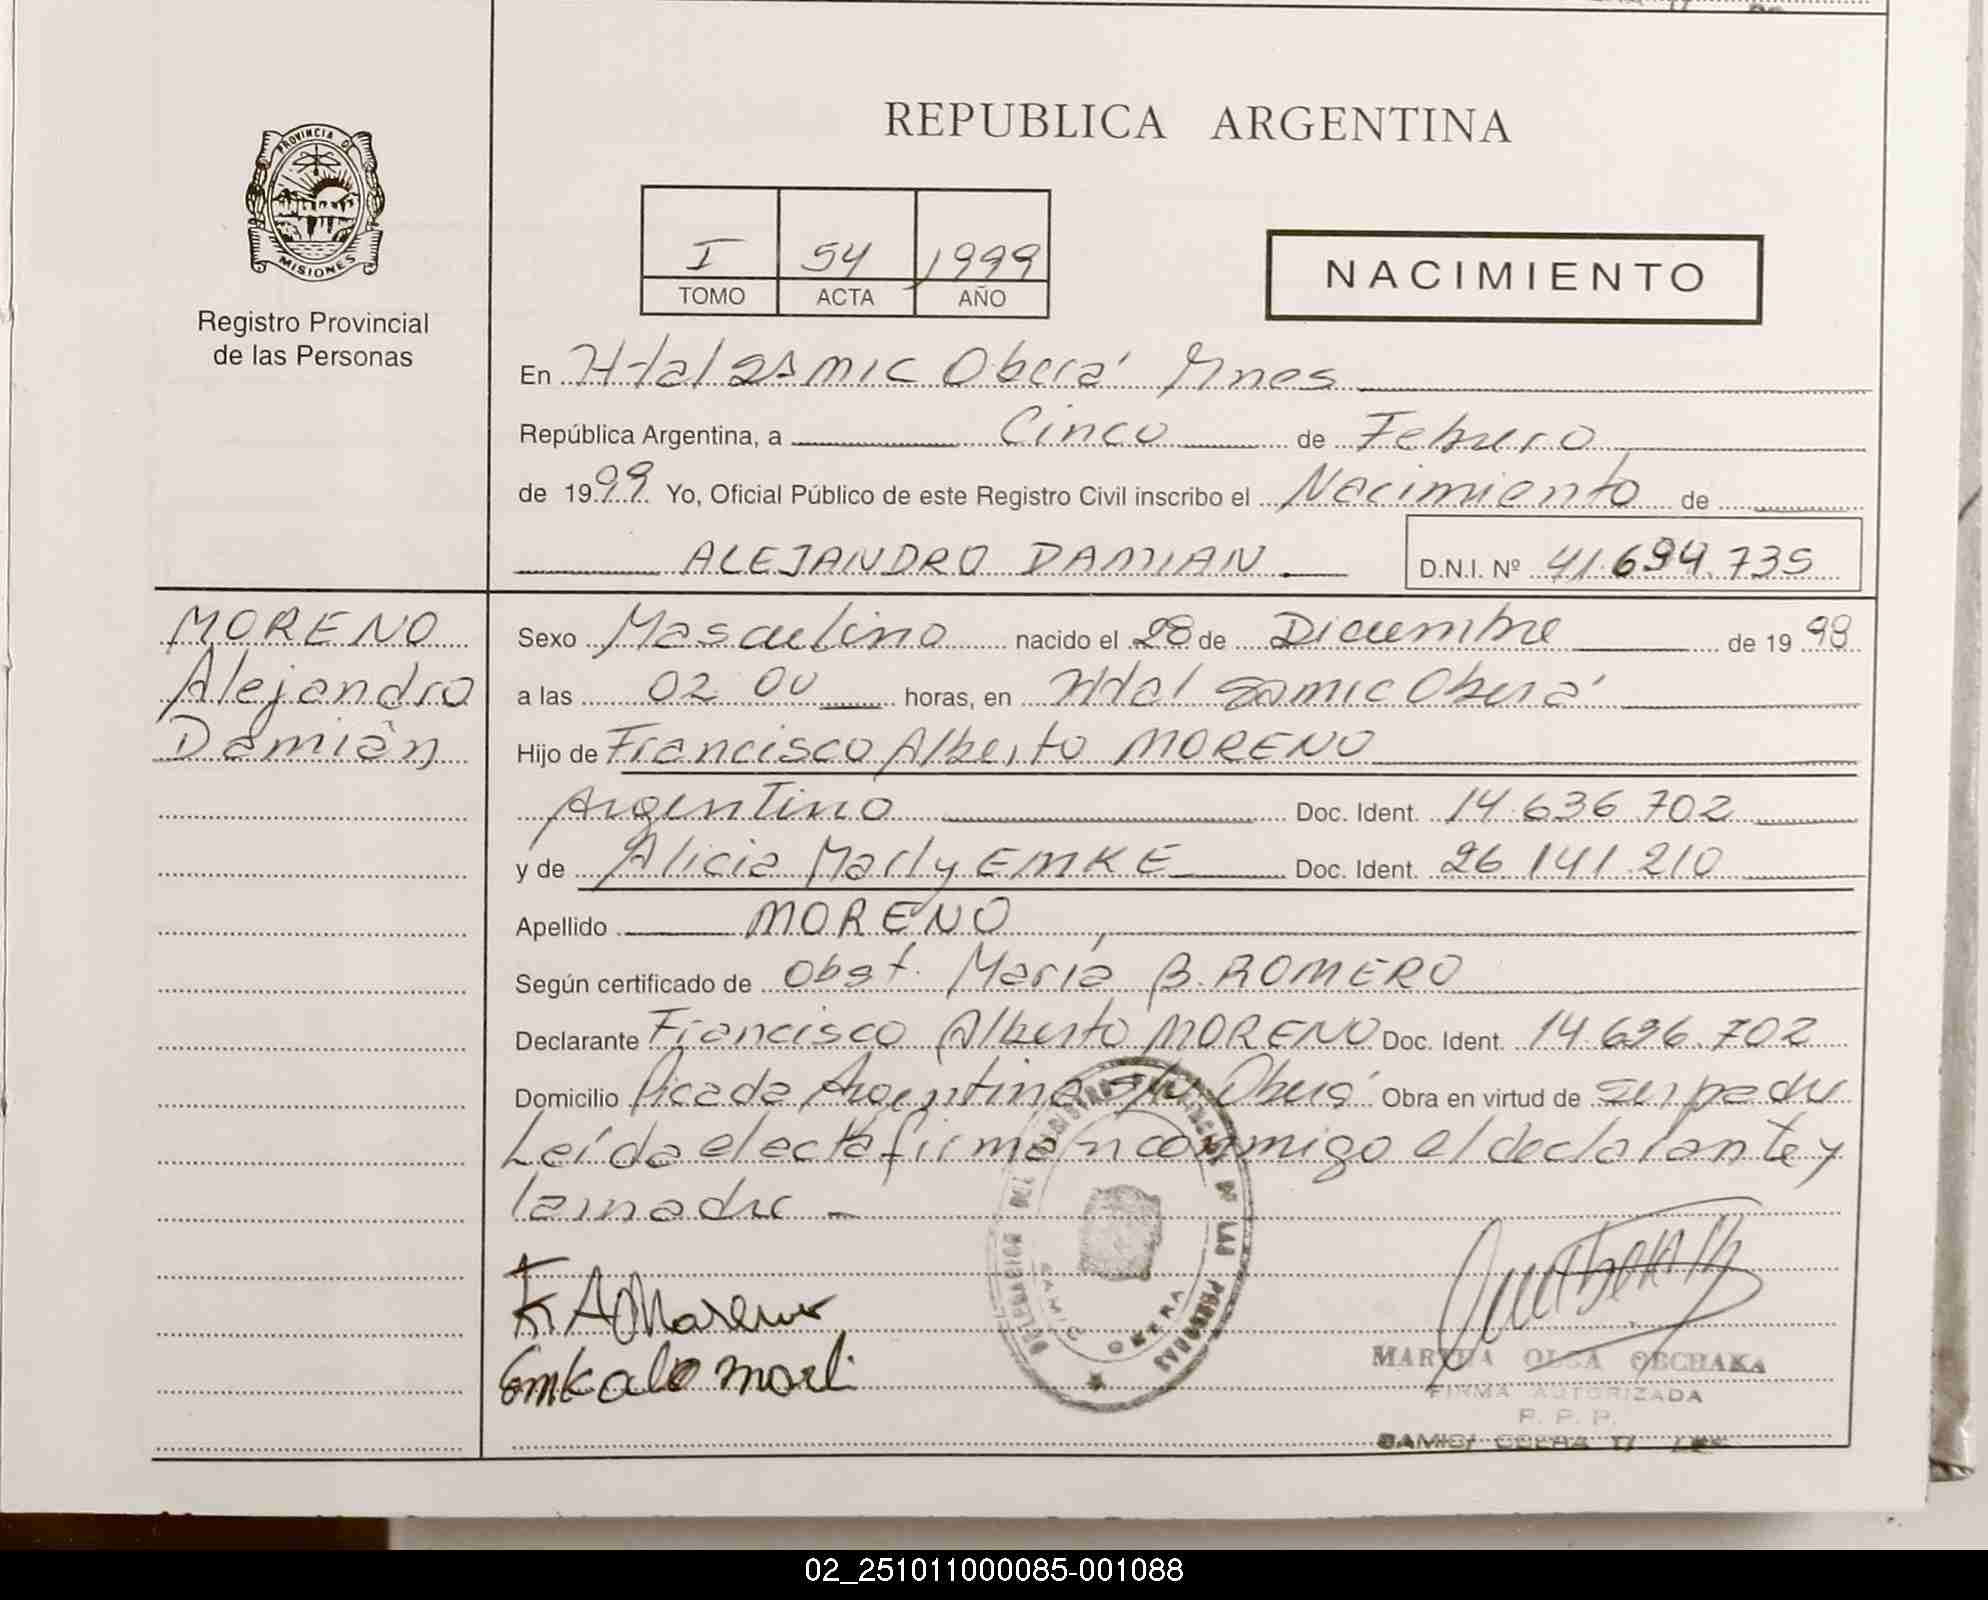 PROVINCIA DE
MISIONES
Registro Provincial
de las Personas
REPUBLICA ARGENTINA
I 54 1999
TOMO ACTA AÑO
NACIMIENTO
En Htal Samic Oberá Mnes
República Argentina, a Cinco de Febrero
de 1999. Yo, Oficial Público de este Registro Civil inscribo el Nacimiento de
ALEJANDRO DAMIAN D.N.I. Nº 41.694.735
MORENO
Alejandro
Damián
Sexo Masculino nacido el 28 de Diciembre de 1998
a las 02 00 horas, en Htal Samic Oberá
Hijo de Francisco Alberto MORENO
Argentino Doc. Ident. 14.636.702
y de Alicia Marly EMKE Doc. Ident. 26.141.210
Apellido MORENO
Según certificado de Obst. María B. ROMERO
Declarante Francisco Alberto MORENO Doc. Ident. 14.696.702
Domicilio Picada Argentina s/n Oberá Obra en virtud de ser padre
Leída el acta firman conmigo el declarante y
la madre -
F. A Moreno
MARTHA OLGA OBCHAKA
FIRMA AUTORIZADA
R. P. P.
SAMIC OBERA
02_251011000085-001088